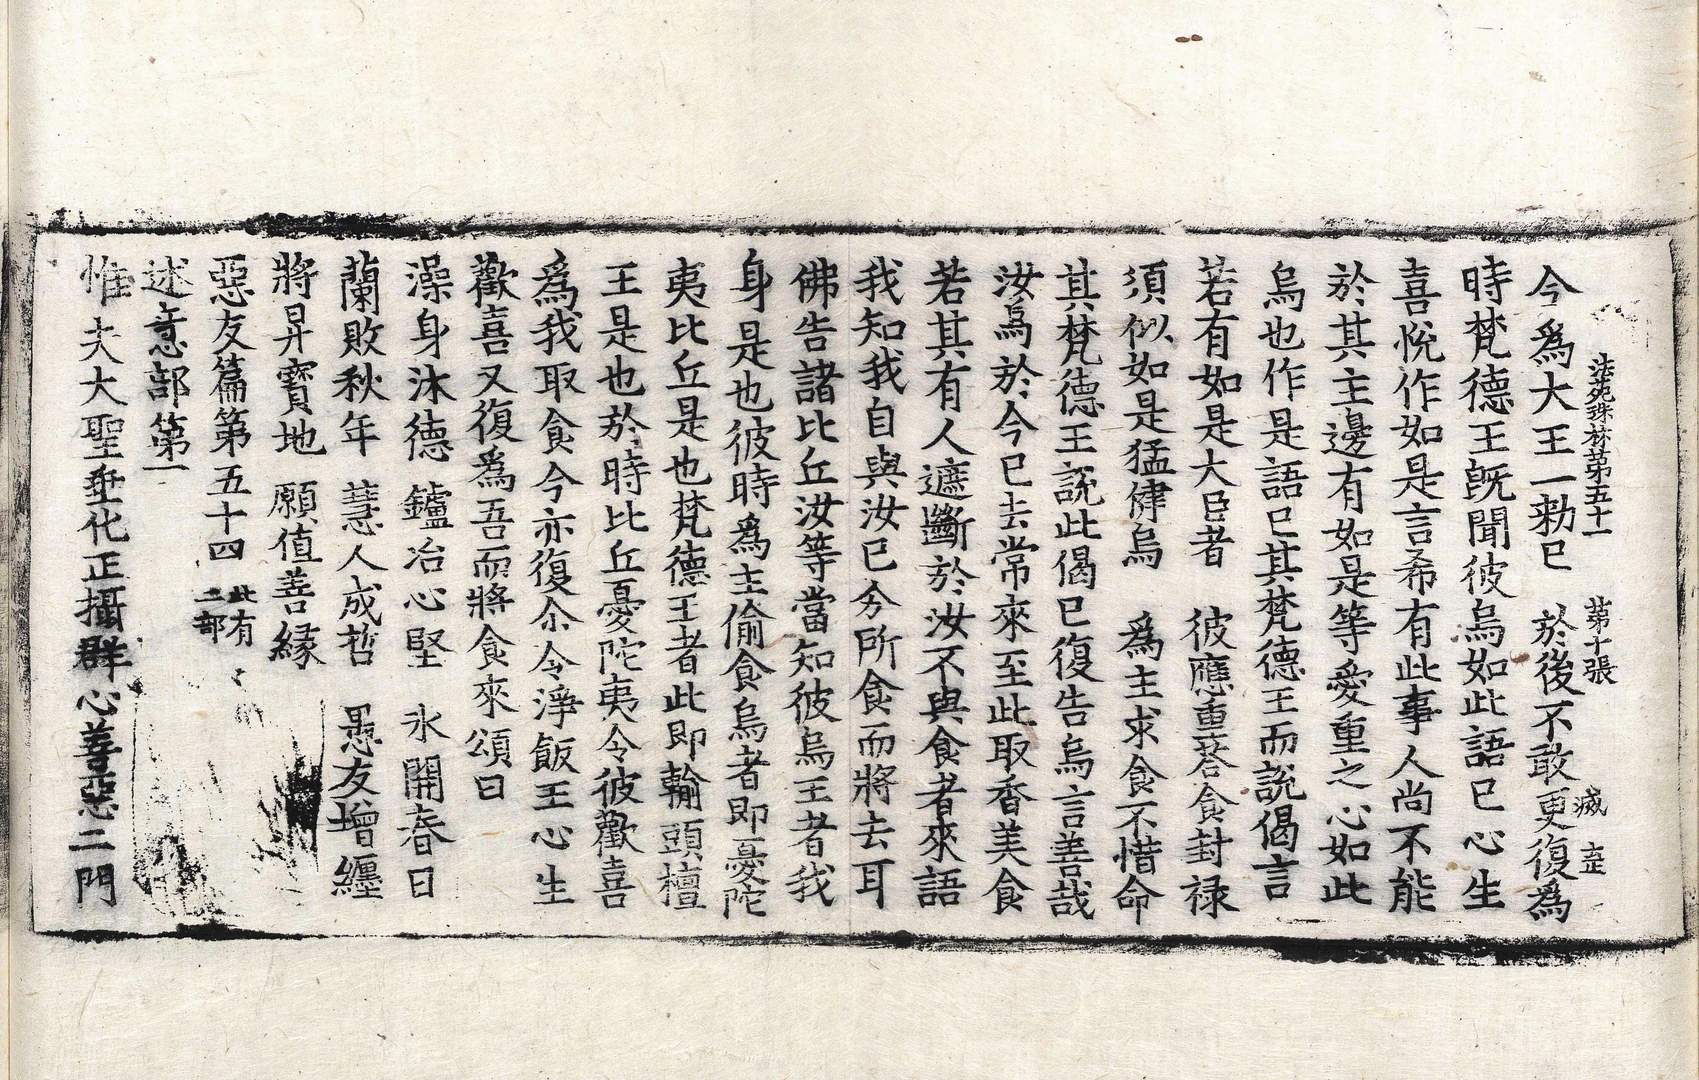 法苑珠林第五十一 第十張 滅 㱏
今爲大王一勑已 於後不敢更復爲
時梵德王旣聞彼烏如此語已心生
喜悅作如是言希有此事人尚不能
於其主邊有如是等愛重之心如此
烏也作是語已其梵德王而說偈言
若有如是大臣者 彼應重荅食封禄
須似如是猛健烏 爲主求食不惜命
其梵德王說此偈已復告烏言善哉
汝烏於今已去常來至此取香美食
若其有人遮斷於汝不與食者來語
我知我自與汝已分所食而將去耳
佛告諸比丘汝等當知彼烏王者我
身是也彼時爲主偷食烏者即憂陀
夷比丘是也梵德王者此即輸頭檀
王是也於時比丘憂陀夷令彼歡喜
爲我取食今亦復尒令淨飯王心生
歡喜又復爲吾而將食來頌曰
澡身沐德 鑪冶心堅 氷開春日
蘭敗秋年 慧人成哲 愚友增纏
將昇寶地 願值善縁
惡友篇第五十四 此有二部
述意部第一
惟夫大聖垂化正攝群心善惡二門